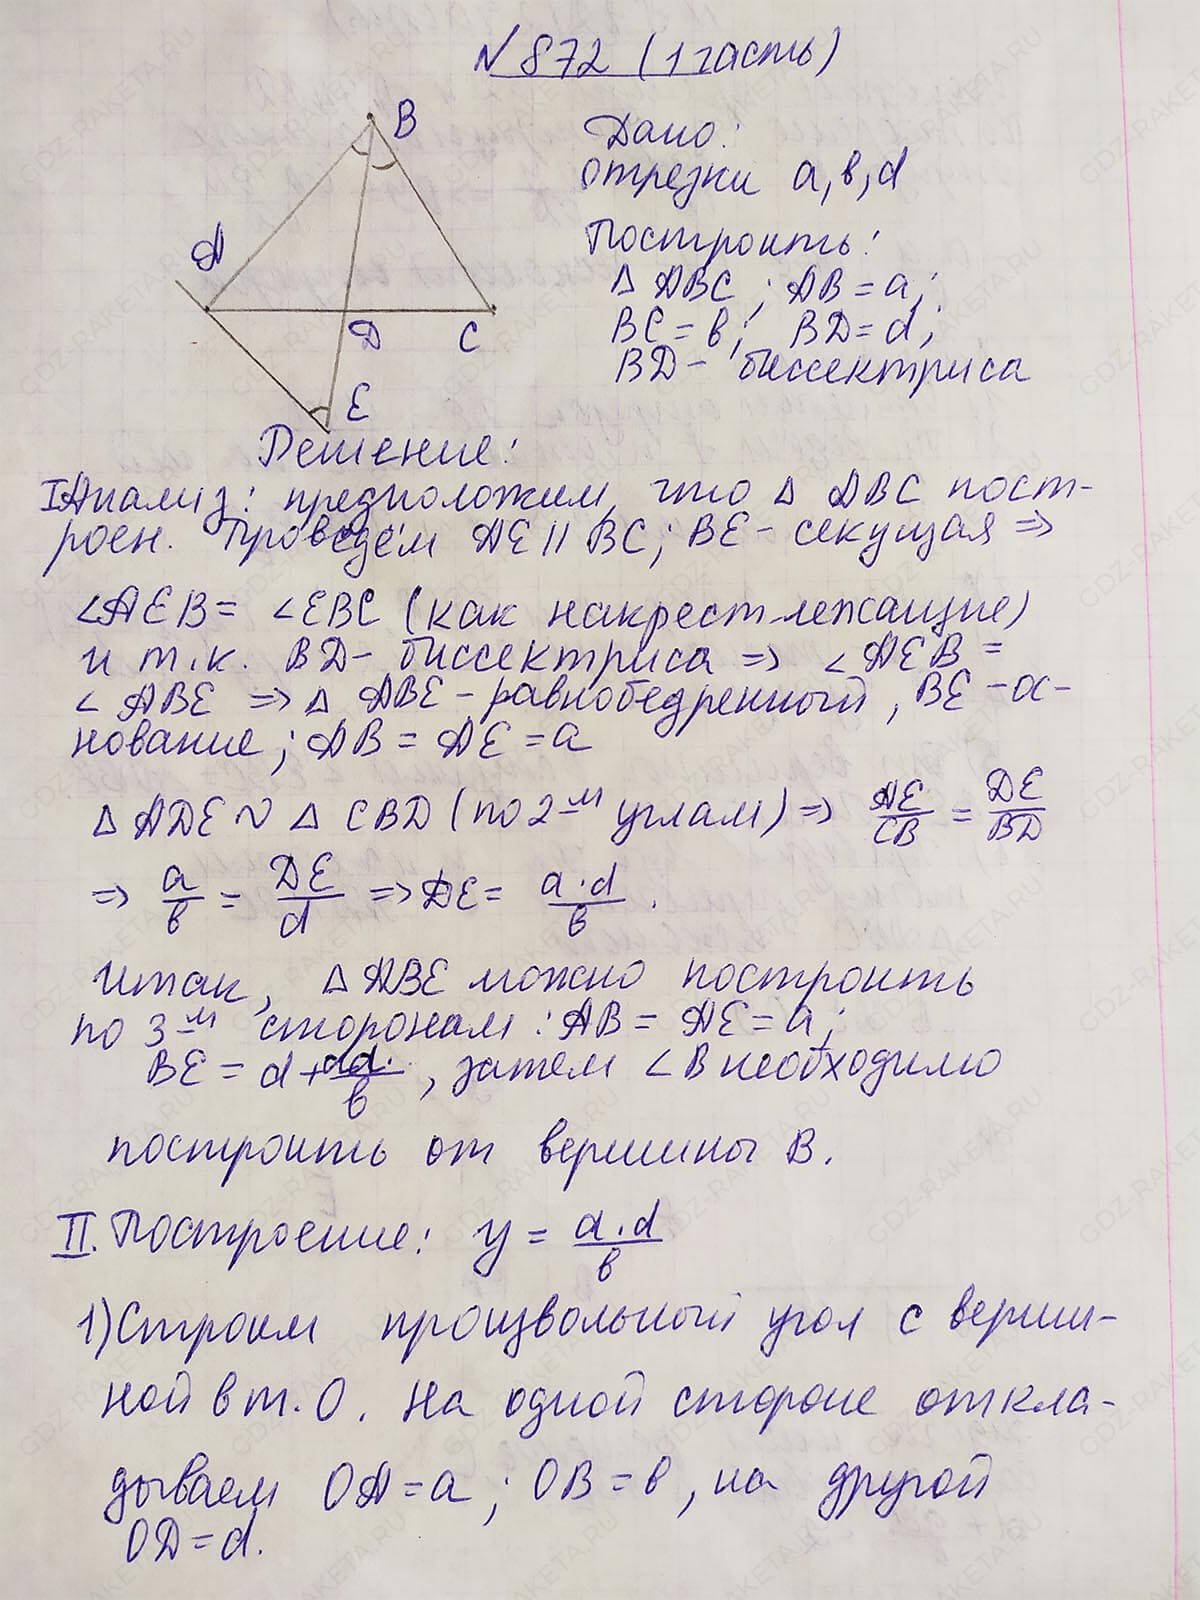 № 872 (1 часть)
B
Дано:
отрезки a, b, d
A
Построить:
Δ ABC ; AB = a;
BC = b; BD = d;
D C
BD - биссектриса
E
Решение:
I Анализ: предположим, что Δ ABC пост-
роен. Проведём AE || BC; BE - секущая =>
∠AEB = ∠EBC (как накрест лежащие)
и т.к. BD - биссектриса => ∠AEB =
∠ABE => Δ ABE - равнобедренный, BE - ос-
нование; AB = AE = a
Δ ADE ~ Δ CBD (по 2-м углам) => AE/CB = DE/BD
=> a/b = DE/d => DE = a·d/b.
Итак, Δ ABE можно построить
по 3-м сторонам: AB = AE = a;
BE = d + ad/b, затем ∠B необходимо
построить от вершины B.
II. Построение: y = a·d/b
1) Строим произвольный угол с верши-
ной в т. O. На одной стороне откла-
дываем OA = a; OB = b, на другой
OD = d.
GDZ-RAKETA.RU